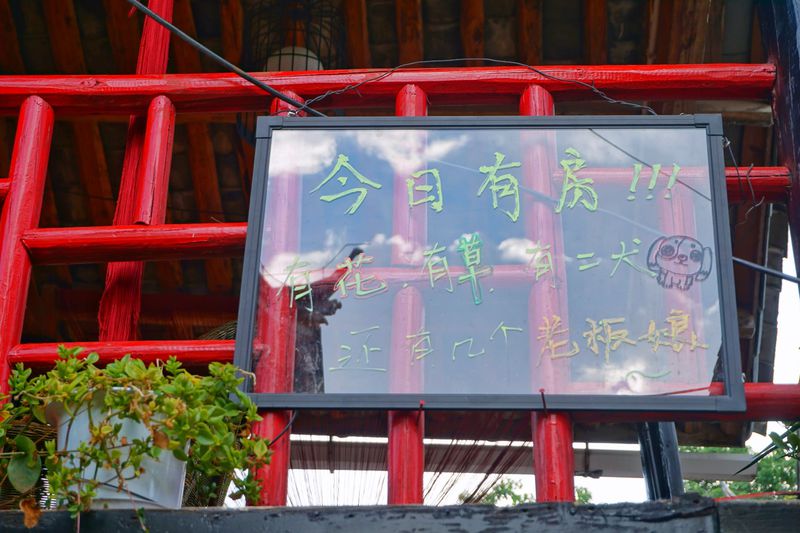 今日有房!!!
有花.有草.有二犬
还有几个老板娘~